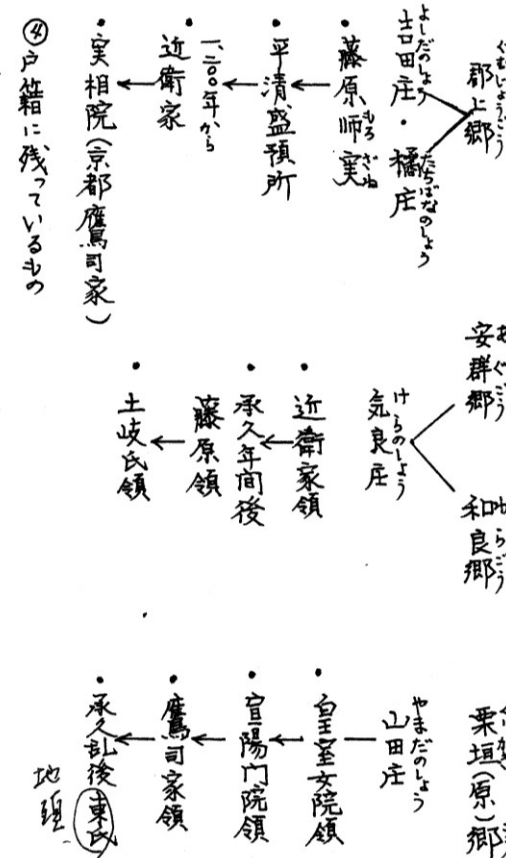 郡上郷
吉田庄・橘庄
よしだのしょう
たちばなのしょう
・藤原師実
もろざね
・平清盛預所
一、二〇〇年から
・近衛家
・実相院(京都鷹司家)
④戸籍に残っているもの
安群郷
あぐごう
和良郷
気良庄
けらのしょう
・近衛家領
・承久年間後
藤原領
・土岐氏領
栗垣(原)郷
山田庄
やまだのしょう
・皇室女院領
・宣陽門院領
・鷹司家領
・承久乱後東氏
地頭